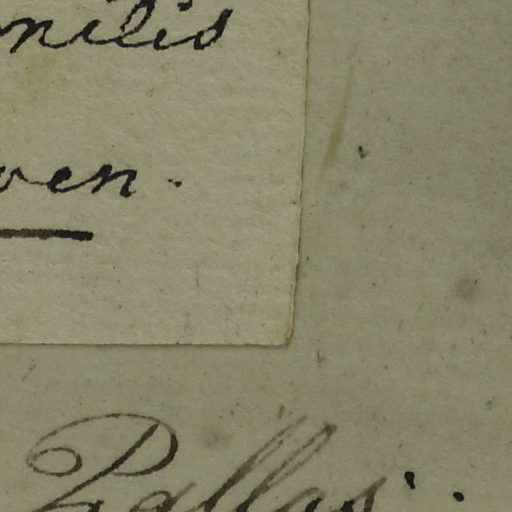 nilis
ven.
Pallas.